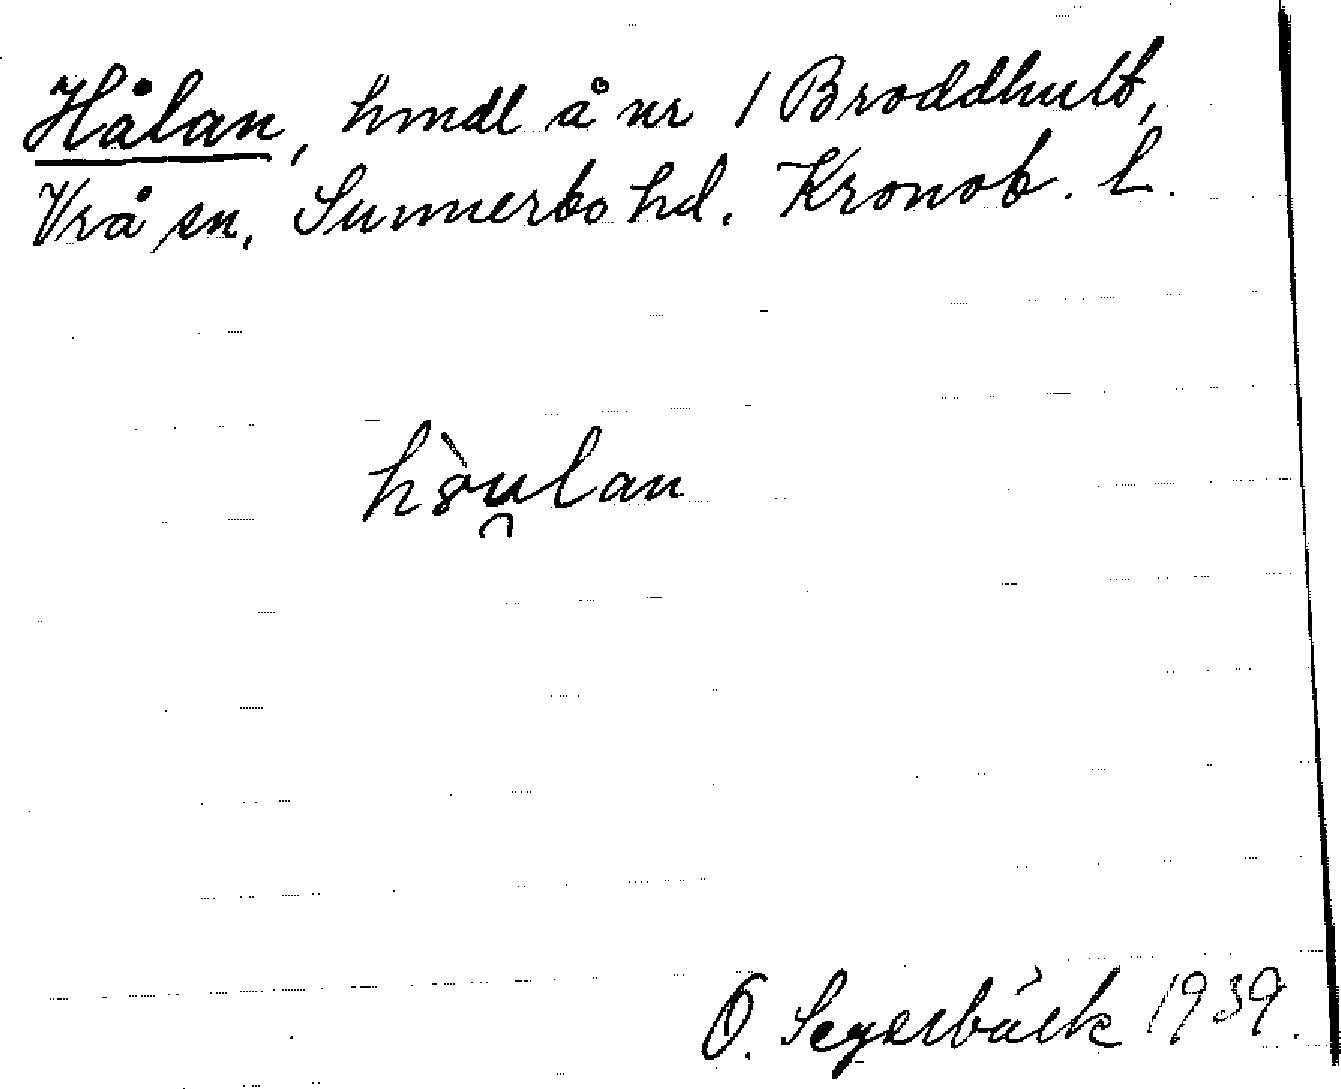 Hålan, hmdl å nr 1 Broddhult,
Vrå sn, Sunnerbo hd. Kronob. l.
hòu̯lan
O. Segerbäck 1939.